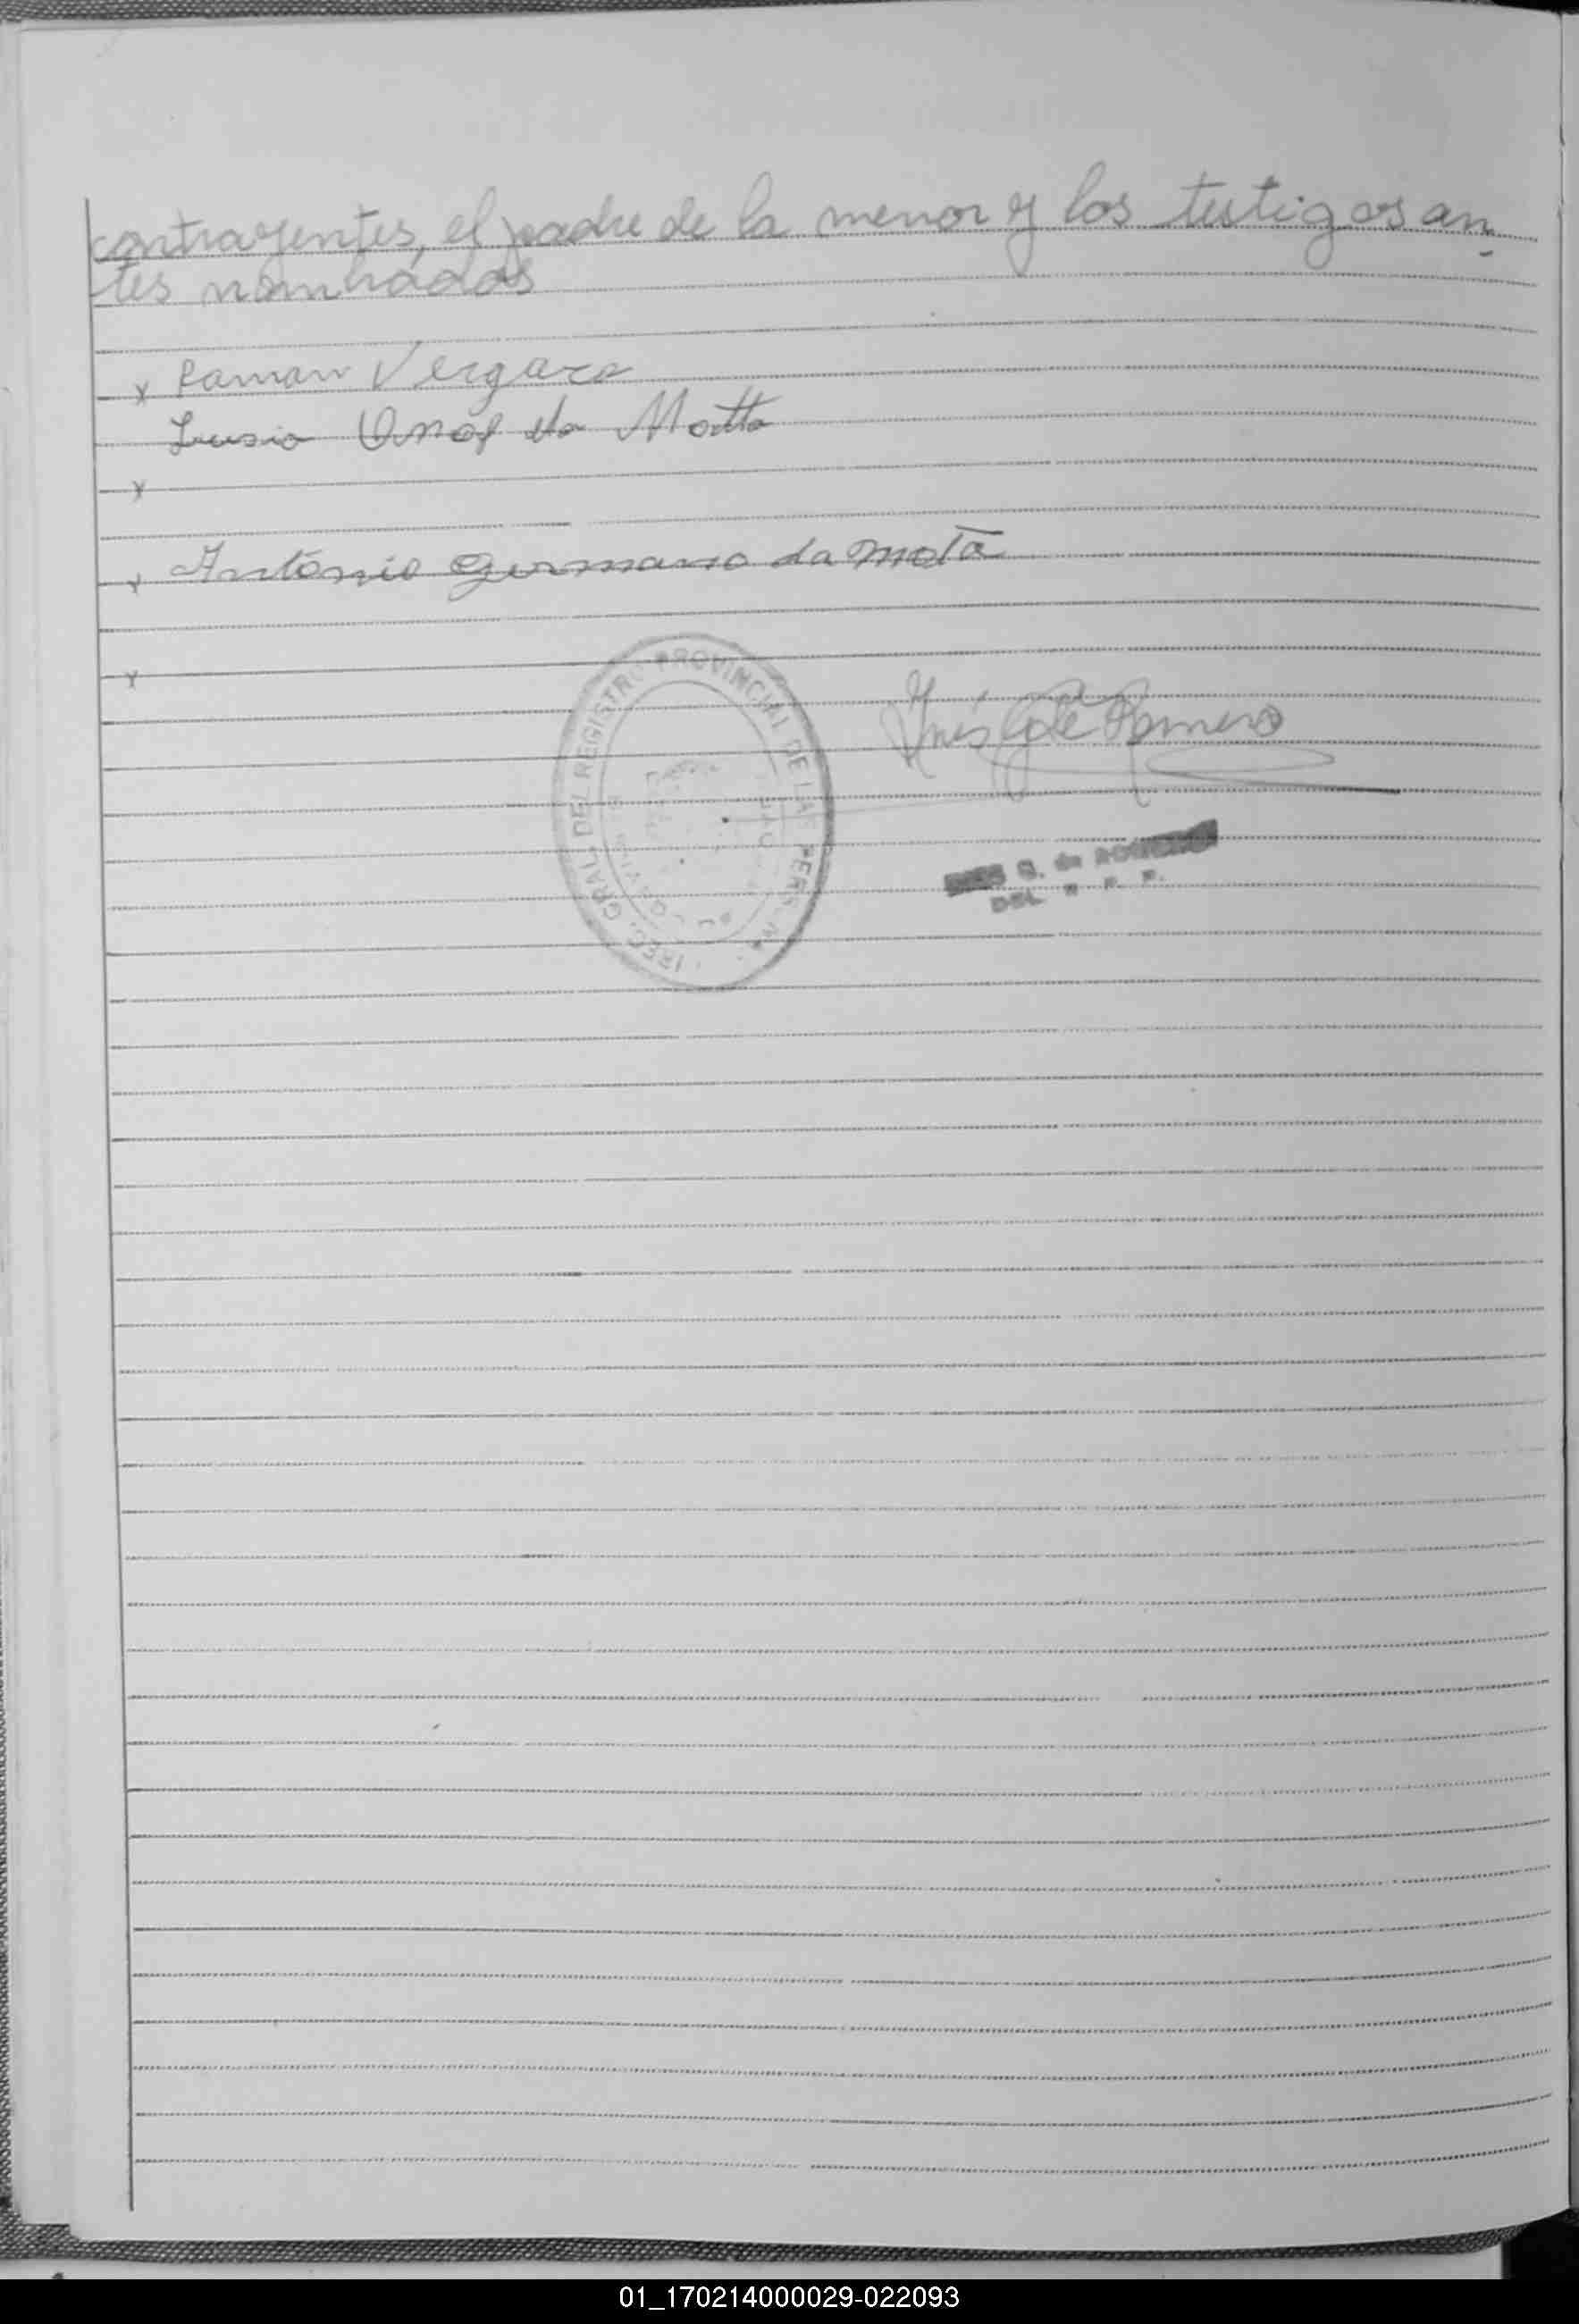 contrayentes, el padre de la menor y los testigos an-
tes nombrados
x Ramon Vergara
Lusia da Motta
x
x Antônio Germano da Mota
x
PROVINCIAL DE LAS PERS
GRAL. DEL REGISTRO
Inés G de Romero
INES G. de ROMERO
DEL. R. P. P.
01_170214000029-022093